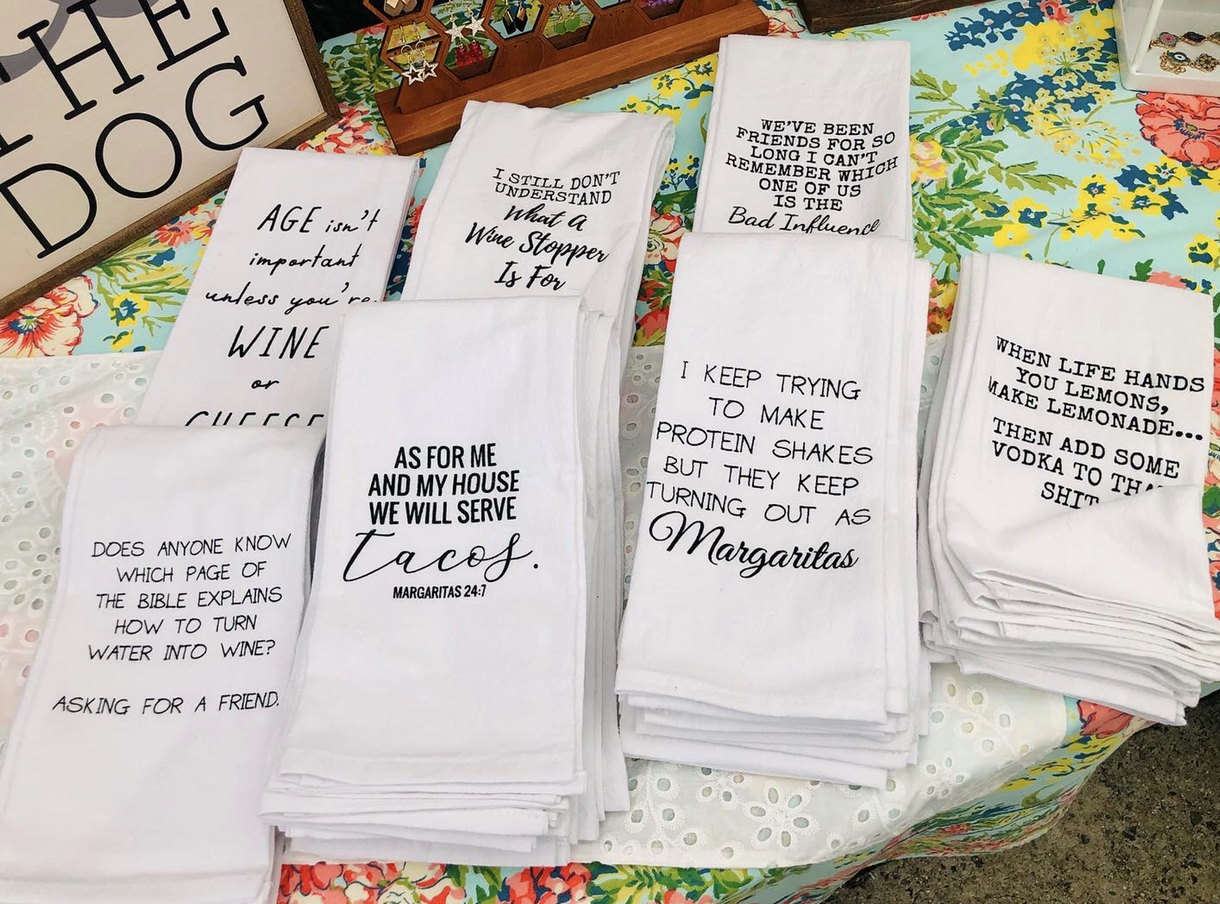 THE
DOG
AGE isn't
important
unless you're
WINE
or
CHEESE
I STILL DON'T
UNDERSTAND
What A
Wine Stopper
Is For
WE'VE BEEN
FRIENDS FOR SO
LONG I CAN'T
REMEMBER WHICH
ONE OF US
IS THE
Bad Influence
DOES ANYONE KNOW
WHICH PAGE OF
THE BIBLE EXPLAINS
HOW TO TURN
WATER INTO WINE?
ASKING FOR A FRIEND.
AS FOR ME
AND MY HOUSE
WE WILL SERVE
tacos.
MARGARITAS 24:7
I KEEP TRYING
TO MAKE
PROTEIN SHAKES
BUT THEY KEEP
TURNING OUT AS
Margaritas
WHEN LIFE HANDS
YOU LEMONS,
MAKE LEMONADE...
THEN ADD SOME
VODKA TO THAT
SHIT